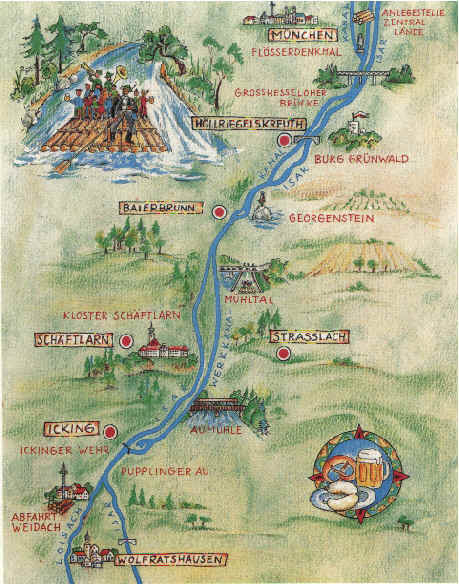 MÜNCHEN
FLÖSSERDENKMAL
KANAL
ISAR
ANLEGESTELLE
ZENTRAL
LÄNDE
GROSSHESSELOHER
BRÜCKE
HÖLLRIEGELSKREUTH
KANAL
ISAR
BURG GRÜNWALD
BAIERBRUNN
GEORGENSTEIN
MÜHLTAL
KLOSTER SCHÄFTLARN
SCHÄFTLARN
STRASSLACH
WERKKANAL
ISAR
AUMÜHLE
ICKING
ICKINGER WEHR
PUPPLINGER AU
ABFAHRT
WEIDACH
LOISACH
ISAR
WOLFRATSHAUSEN